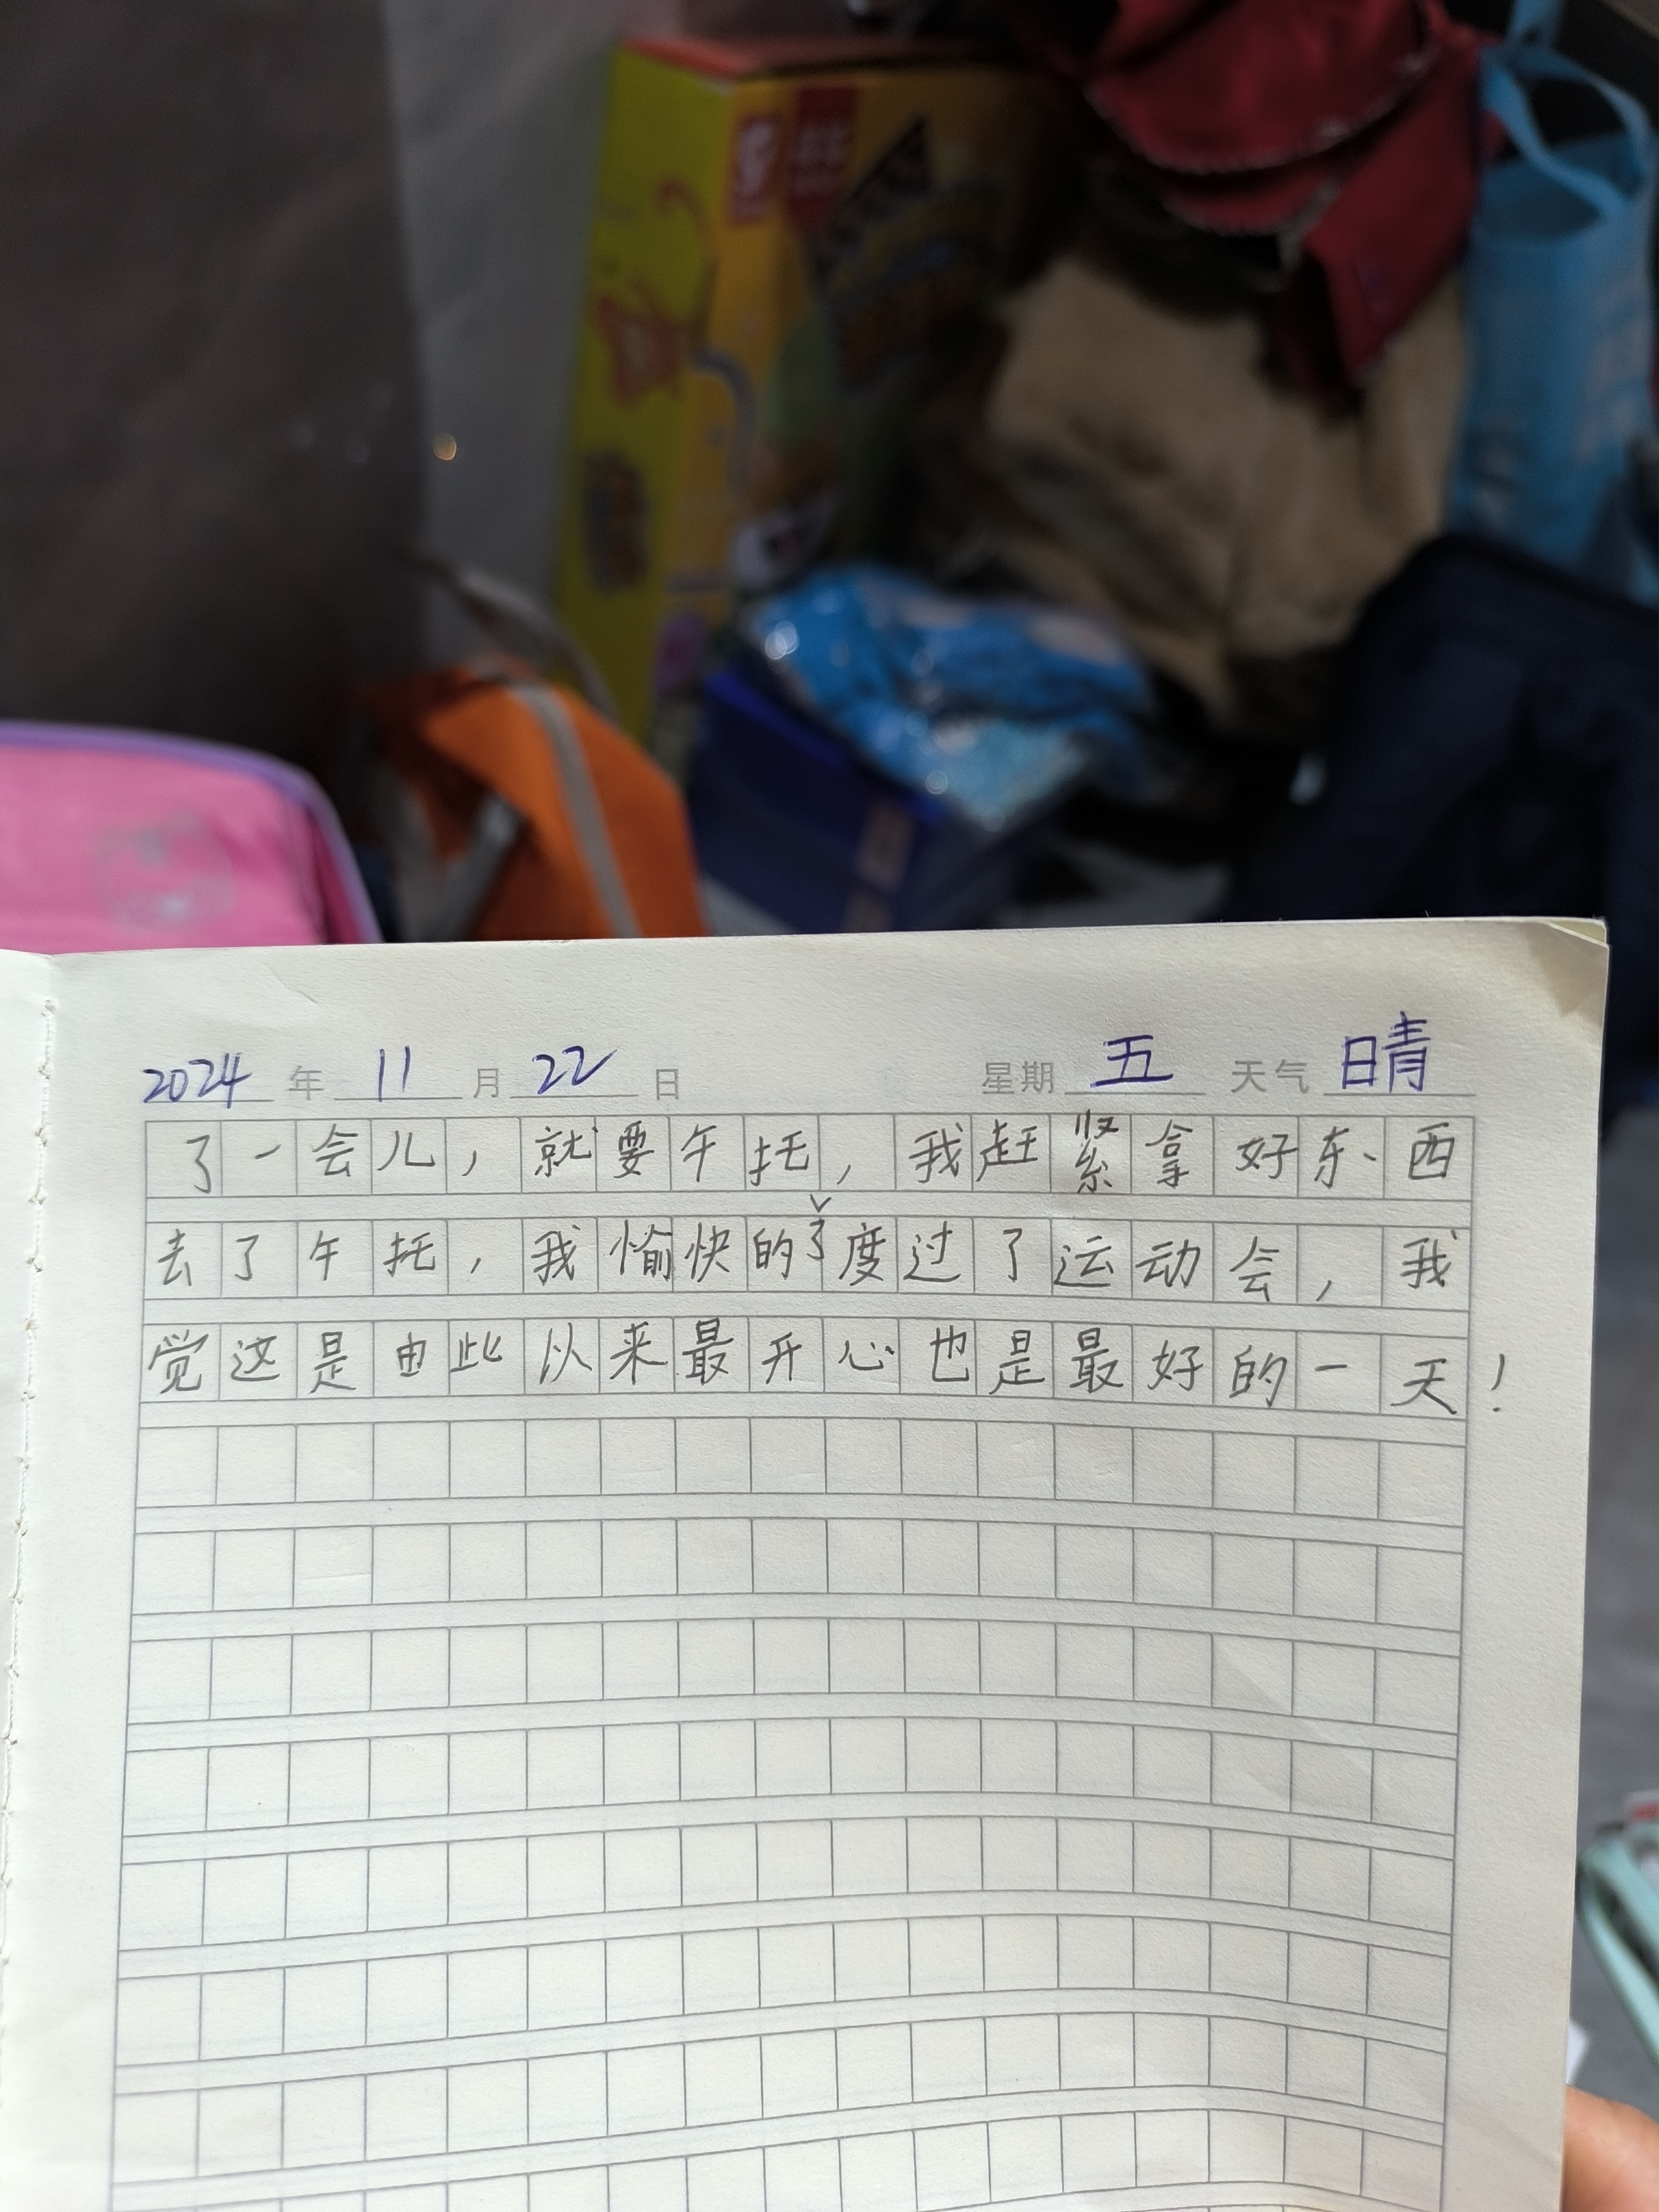 2024年11月22日 星期五 天气晴
了一会儿，就要午托，我赶紧拿好东西
去了午托，我愉快的了度过了运动会，我
觉这是由此以来最开心也是最好的一天！